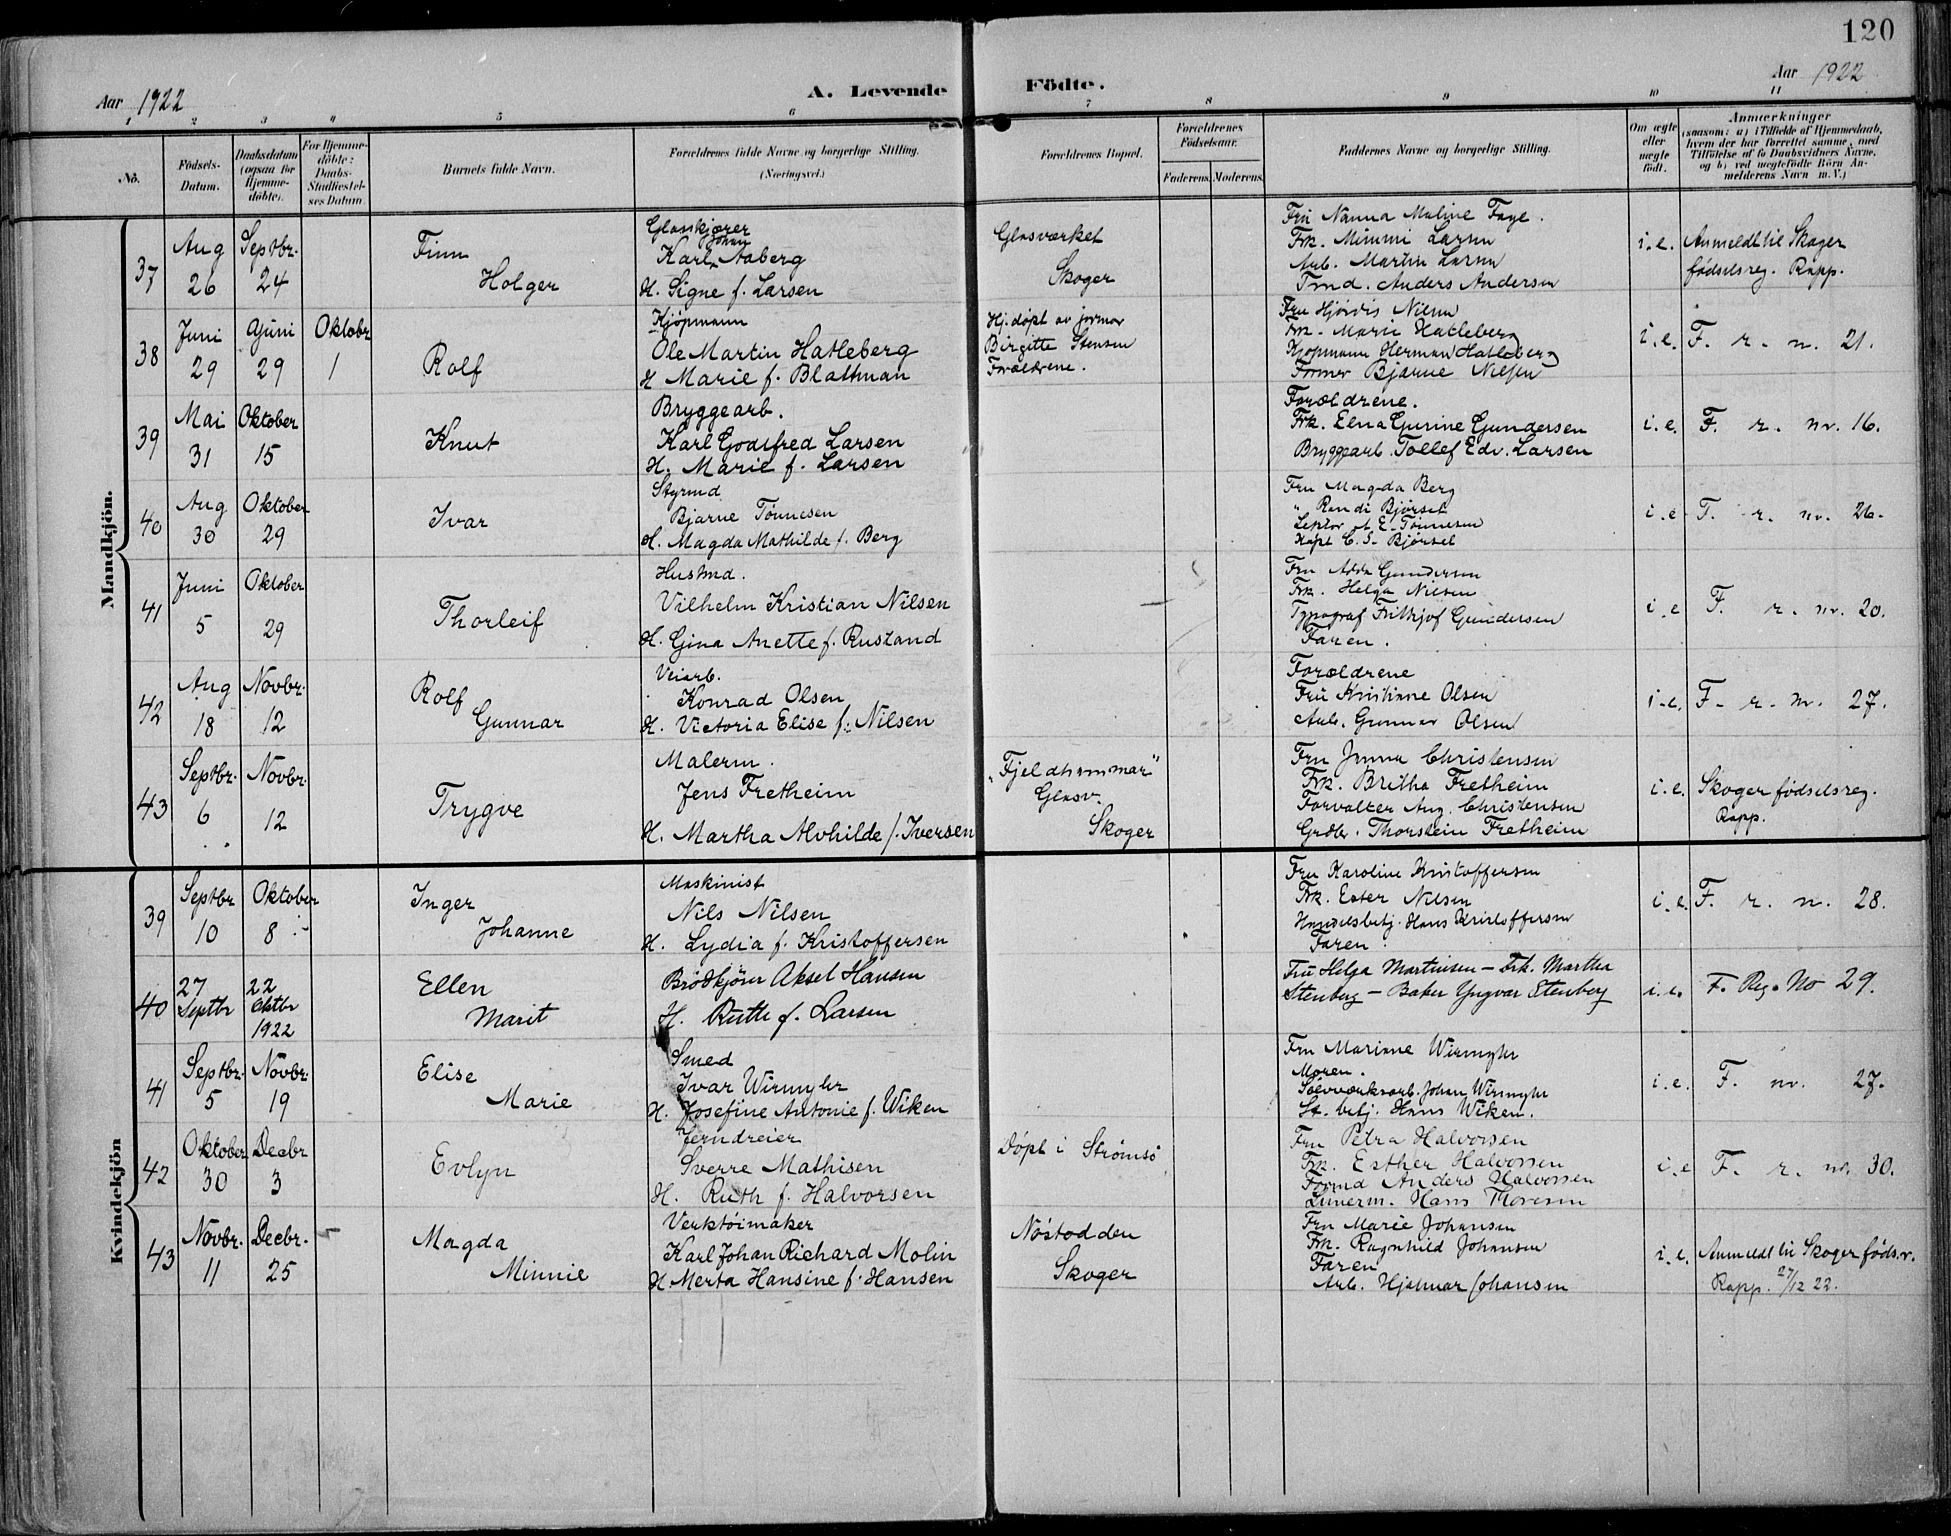 120
Aar 1922
A. Levende Födte.
Aar 1922
1 2 3 4 5 6 7 8 9 10 11
No.
Födsels-Datum.
Daabsdatum (ogsaa for Hjemme-döbte).
For Hjemme-döbte: Daabs-Stadfæstel-ses Datum.
Barnets fulde Navn.
Forældrenes fulde Navne og borgerlige Stilling. (Næringsvei.)
Forældrenes Bopæl.
Forældrenes Födselsaar.
Faderens. Moderens.
Faddernes Navne og borgerlige Stilling.
Om ægte eller uægte födt.
Anmærkninger
(saasom: a) i Tilfælde af Hjemmedaab, hvem der har forrettet samme, med Tilföielse af to Daabsvidners Navne, og b) ved uægtefödte Börn An-melderens Navn m. V.)
Mandkjön.
37
Aug 26
Septbr. 24
Finn Holger
Glasskjærer
Karl Johan Aaberg
H. Signe f. Larsen
Glasværket
Skoger
Fru Nanna Maline Faye.
Frk. Mimmi Larsen
Arb. Martin Larsen
Tmd. Anders Andersen
i.e.
Anmeldt til Skoger
fødselsreg. Rapp.
38
Juni 29
Juni 29
Oktobr 1
Rolf
Kjøpmann
Ole Martin Hatleberg
H Marie f. Blattman
Hj. døpt av jormor
Birgitte Stensen
Forældrene.
Fru Hjørdis Nilsen
Frk. Marie Hatleberg
Kjøpmann Herman Hatleberg
Former Bjarne Nielsen
i.e.
F. r. n. 21.
39
Mai 31
Oktober 15
Knut
Bryggearb.
Karl Godtfred Larsen
H. Marie f. Larsen
Forældrene.
Frk. Elna Gurine Gundersen
Bryggearb. Tollef Edv. Larsen
i.e.
F. r. nr. 16.
40
Aug 30
Oktober 29
Ivar
Styrmd.
Bjarne Tønnesen
H. Magda Mathilde f. Berg
Fru Magda Berg
" Randi Bjørsel
Lektor E. Tønnesen
Kapt C. S. Bjørsel
i.e
F. r. nr. 26.
41
Juni 5
Oktober 29
Thorleif
Hustmd.
Vilhelm Kristian Nilsen
H. Gina Anette f. Rustand
Fru Adda Gundersen
Frk. Helga Nilsen
Typograf Frithjof Gundersen
Faren.
i.e
F. r. nr. 20.
42
Aug 18
Novbr. 12
Rolf Gunnar
Veiarb.
Konrad Olsen
H. Victoria Elise f. Nilsen
Forældrene
Fru Kristiane Olsen
Arb. Gunnar Olsen
i.e.
F. r. nr. 27.
43
Septbr. 6
Novbr. 12
Trygve
Malerm.
Jens Fretheim
H. Martha Alvhilde f. Iversen
"Fjeldhammar"
Glasv.
Skoger
Fru Jenna Christensen
Frk. Britha Fretheim
Forvalter Aug. Christensen
Grdbr. Thorstein Fretheim
i.e.
Skoger fødselsreg.
Rapp.
Kvindekjön
39
Septbr 10
Oktober 8
Inger Johanne
Maskinist
Nils Nilsen
H. Lydia f. Kristoffersen
Fru Karoline Kristoffersen
Frk. Ester Nilsen
Handelsbetj. Hans Kristoffersen
Faren.
i.e.
F. r. n. 28.
40
27 Septbr
22 Oktbr 1922
Ellen Marit
Brödkjörer Aksel Hansen
H. Ruth f. Larsen
Fru Helga Martinsen – Frk. Martha
Stenberg – Baker Yngvar Stenberg
i.e.
F. Reg. No 29.
41
Septbr. 5
Novbr. 19
Elise Marie
Smed
Ivar Wirmyhr
H. Josefine Antonie f. Wiken
Fru Marinne Wirmyhr
Moren.
Sølvværksarb. Johan Wirmyhr
St. betj. Hans Wiken.
i.e.
F. nr. 27.
42
Oktober 30
Decbr 3
Evlyn
Jerndreier
Sverre Mathisen
H. Ruth f. Halvorsen
Døpt i Strømsø
Fru Petra Halvorsen
Frk. Esther Halvorsen
Formd Anders Halvorsen
Hans Thoresen
i.e
F. r. nr. 30.
43
Novbr. 11
Decbr. 25
Magda Minnie
Verktøimaker
Karl Johan Richard Molin
H Merta Hansine f. Hansen
Nøstodden
Skoger
Fru Marie Johansen
Frk. Ragnhild Johansen
Faren
Arb. Hjalmar Johansen
i.e.
Anmeldt til Skoger føds.r.
Rapp. 27/12 22.